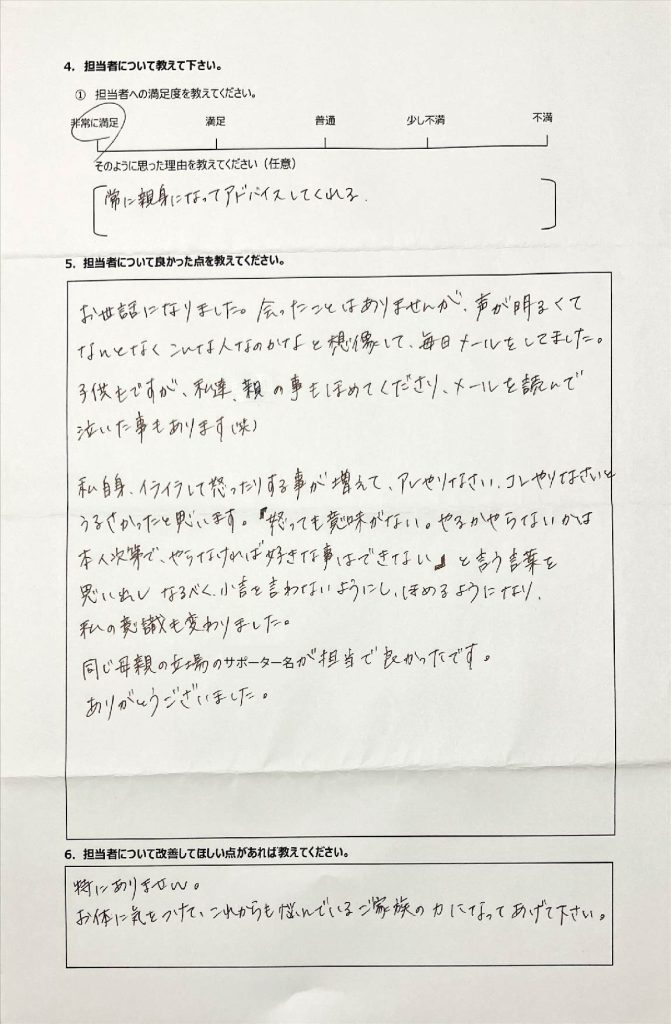 4. 担当者について教えて下さい。
① 担当者への満足度を教えてください。
非常に満足 満足 普通 少し不満 不満
そのように思った理由を教えてください（任意）
常に親身になってアドバイスしてくれる.
5. 担当者について良かった点を教えてください。
お世話になりました。会ったことはありませんが、声が明るくて
なんとなくこんな人なのかなと想像して、毎日メールをしてました。
子供もですが、私達、親の事もほめてくださり、メールを読んで
泣いた事もあります(笑)
私自身、イライラして怒ったりする事が増えて、アレやりなさい、コレやりなさいと
うるさかったと思います。『怒っても意味がない。やるかやらないかは
本人次第で、やらなければ好きな事はできない』と言う言葉を
思い出し なるべく、小言を言わないようにし、ほめるようになり、
私の意識も変わりました。
同じ母親の立場のサポーター名が担当で良かったです。
ありがとうございました。
6. 担当者について改善してほしい点があれば教えてください。
特にありません。
お体に気をつけて、これからも悩んでいるご家族の力になってあげて下さい。